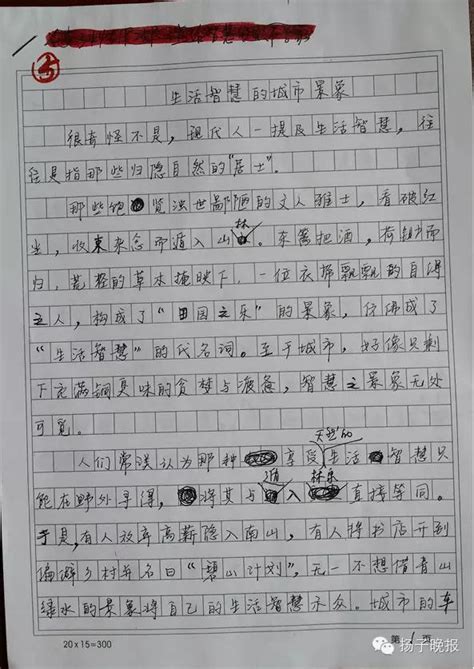 生活智慧的城市景象
很奇怪不是，现代人一提及生活智慧，往
往是指那些归隐自然的“居士”。
那些饱览浊世鄙陋的文人雅士，看破红
尘，收束杂念而遁入山林。东篱把酒，荷锄而
归，荒径的草木掩映下，一位衣袂飘飘的自得
之人，构成了“田园之乐”的景象，仿佛成了
“生活智慧”的代名词。至于城市，好像只剩
下充满铜臭味的贪婪与疲惫，智慧之景象无处
可觅。
人们常误认为那种享受天然的生活智慧只
能在野外寻得，将其与遁入林泉直接等同。
于是，有人放弃高薪隐入南山，有人将书店开到
偏僻乡村并名曰“碧山计划”，无一不想借青山
绿水的景象将自己的生活智慧示众。城市的车
20×15=300
第1页
扬子晚报